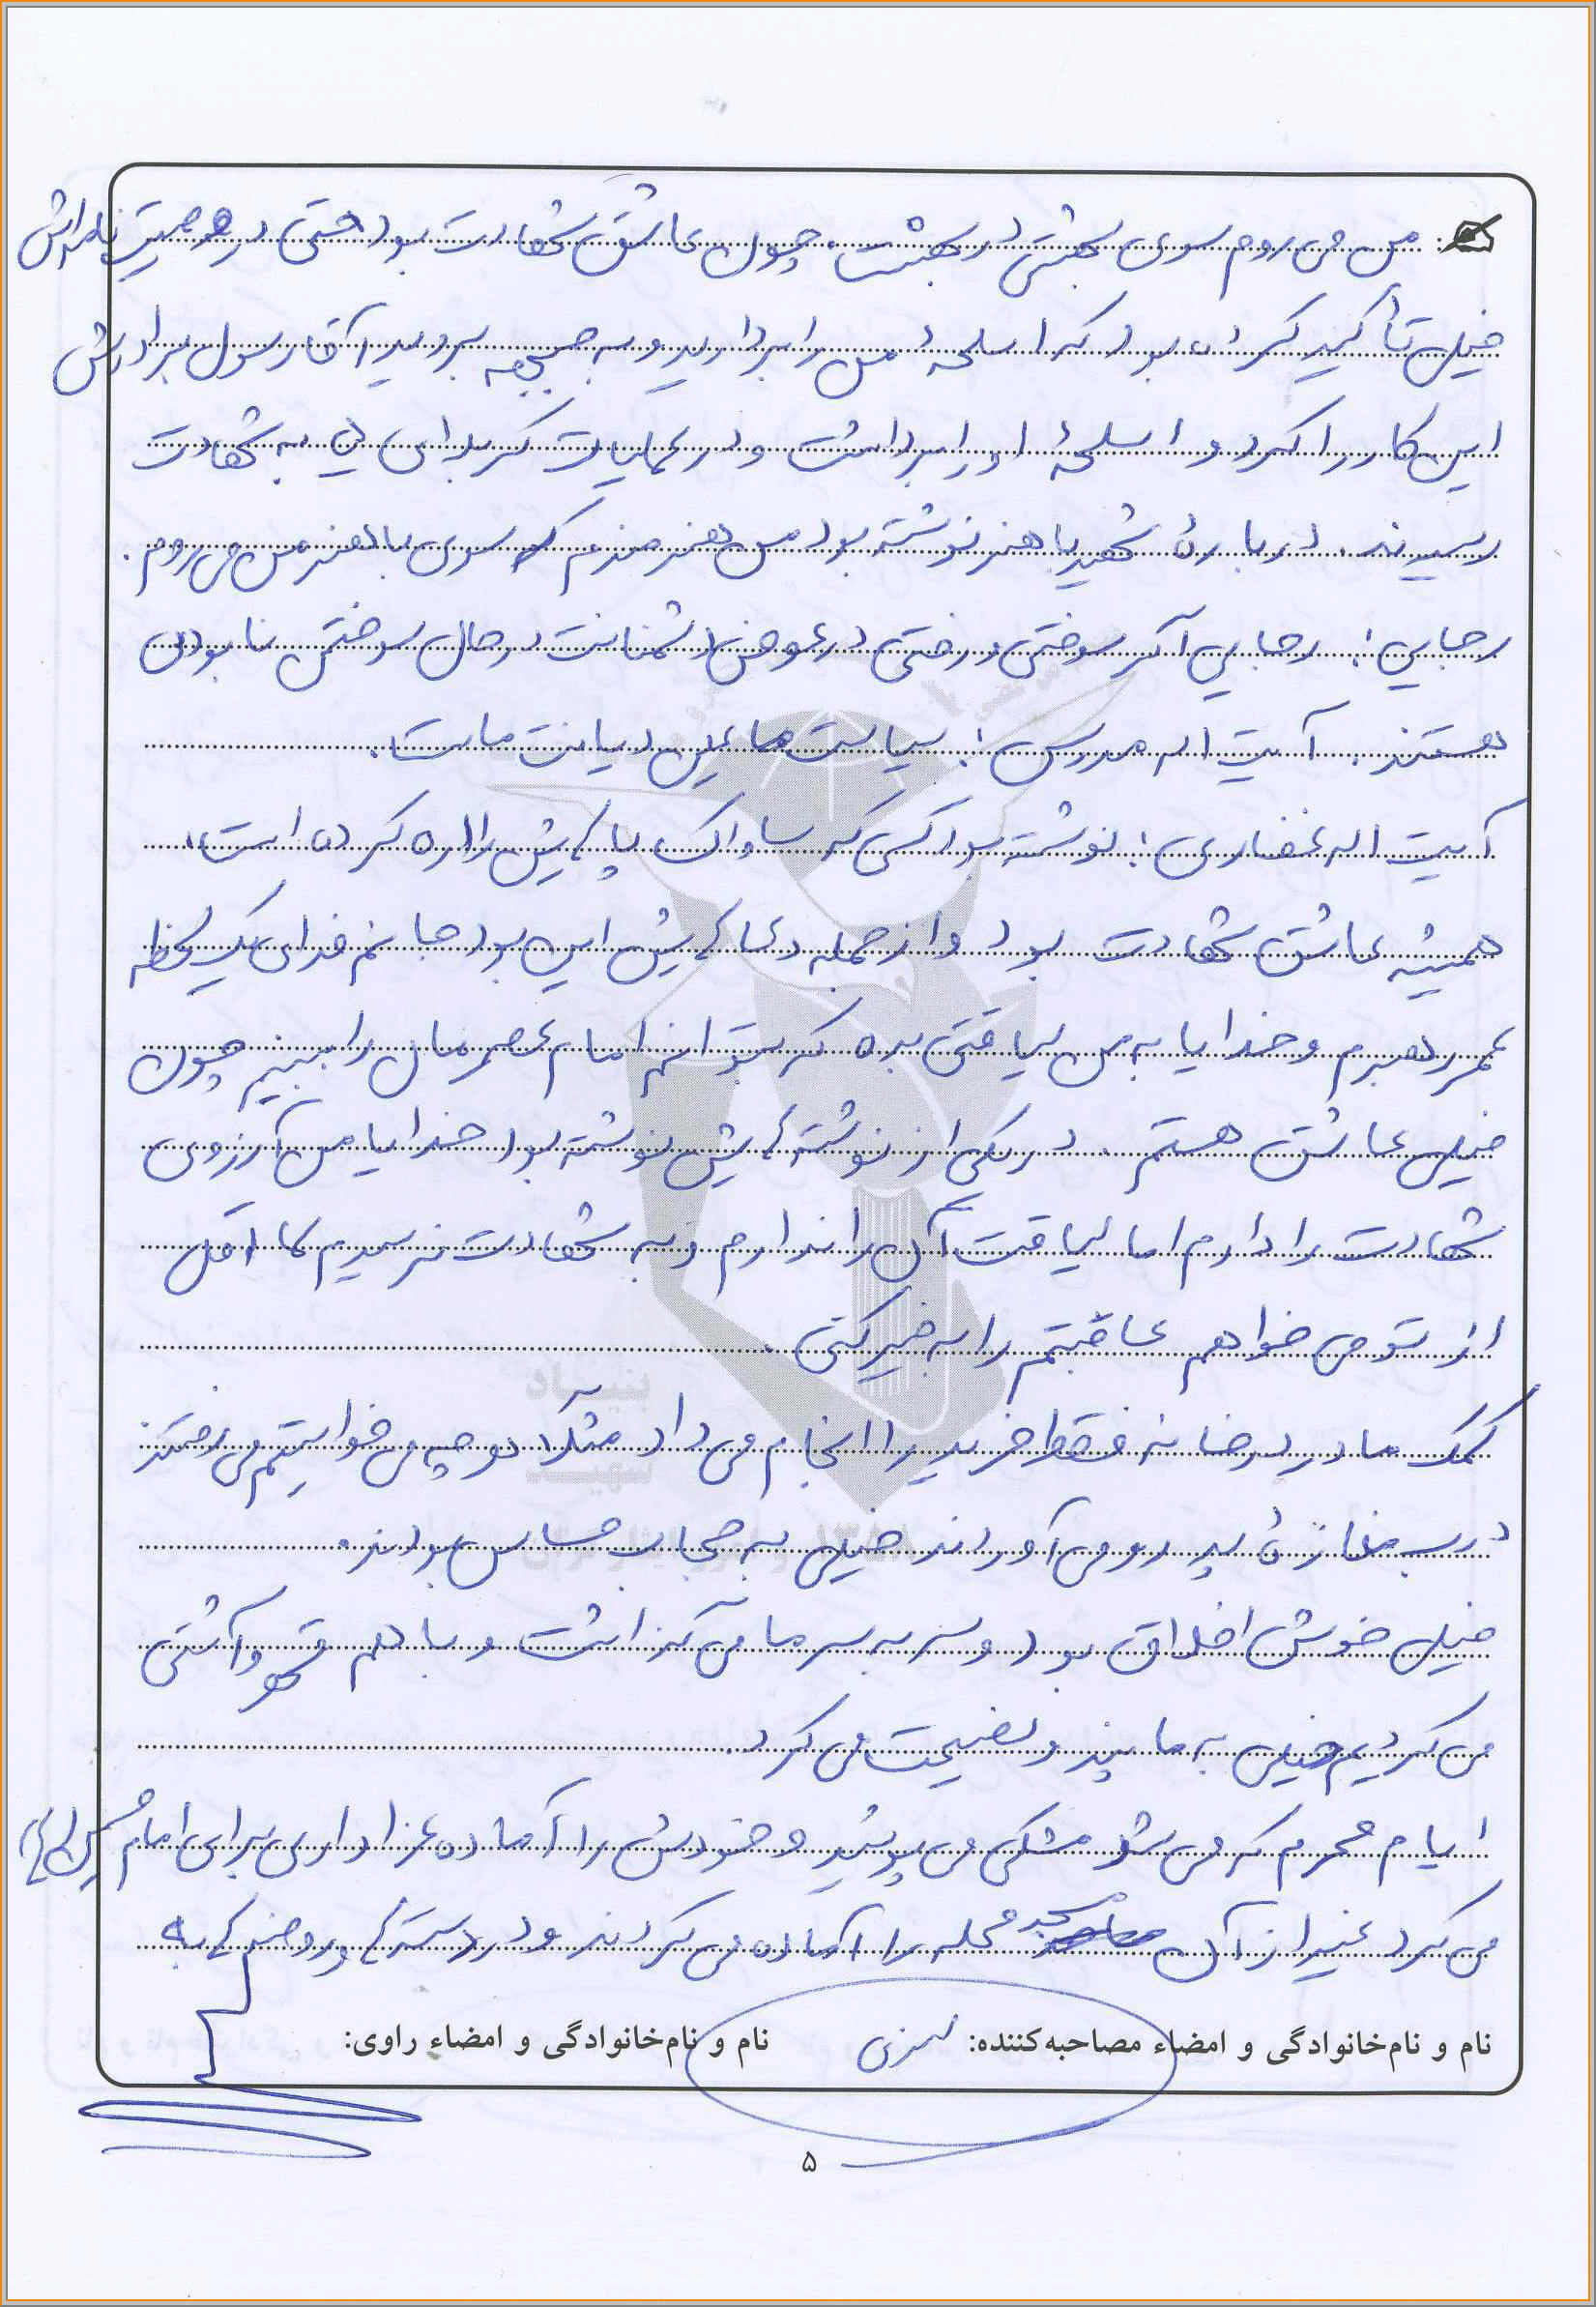 من می روم سوی بهشتی در بهشت. چون عاشق شهادت بود حتی در وصیت نامه اش
خیلی تأکید کرده بود که اسلحهٔ من را بردارید و به جبهه بروید آقا رسول برادرش
این کار را کرد و اسلحهٔ او را برداشت و در عملیات کربلای به شهادت
رسیدند. دربارهٔ شهید باهنر نوشته بود من هنرمندم که سوی باهنر من می روم.
رجایی: رجایی آگر سوختی و رفتی در عوض دشمنانت در حال سوختن نابودن
هستند. آیت اله مدرس: سیاست ما عین دیانت ماست.
آیت اله غفاری: نوشته بود کسی که ساواک پاهایش را اره کرده است.
همیشه عاشق شهادت بود و از جمله دعاهایش این بود جانم فدای یک لحظه
عمر رهبرم و خدایا به من لیاقتی بده که بتوانم امام عصرمان را ببینم چون
خیلی عاشق هستم. در یکی از نوشته هایش نوشته بود خدایا من آرزوی
شهادت را دارم اما لیاقت آن را ندارم و به شهادت نرسیدم لااقل
از تو می خواهم عاقبتم را به خیر کنی.
کمک مادر در خانه فقط خرید را انجام می داد مثلا هر چه می خواستیم می رفتند
درب مغازهٔ پدر و می آوردند خیلی به حجاب حساس بودند.
خیلی خوش اخلاق بود و سر به سر ما می گذاشت و با هم قهر و آشتی
می کردیم خیلی به ما پند و نصیحت می کرد.
ایام محرم که می شد مشکی می پوشید و خودش را آماده عزاداری برای امام حسین (ع)
می کرد غیر از آن مسجد محله را آماده می کردند و در دسته ها و روضه ها به
نام و نام‌خانوادگی و امضاء مصاحبه‌کننده: نام و نام‌خانوادگی و امضاء راوی:
۵